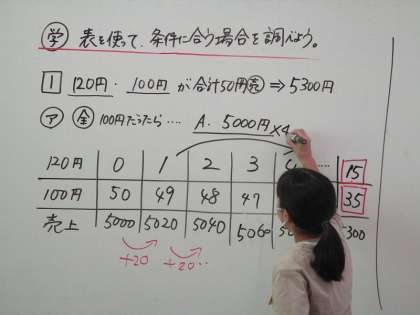 学 表を使って、条件に合う場合を調べよう。
1 120円・100円が合計50冊売⇒5300円
ア 全100円だったら‥‥ A. 5000円 ×4
120円 0 1 2 3 ‥‥ 15
100円 50 49 48 47 35
売上 5000 5020 5040 5060 300
+20 +20‥